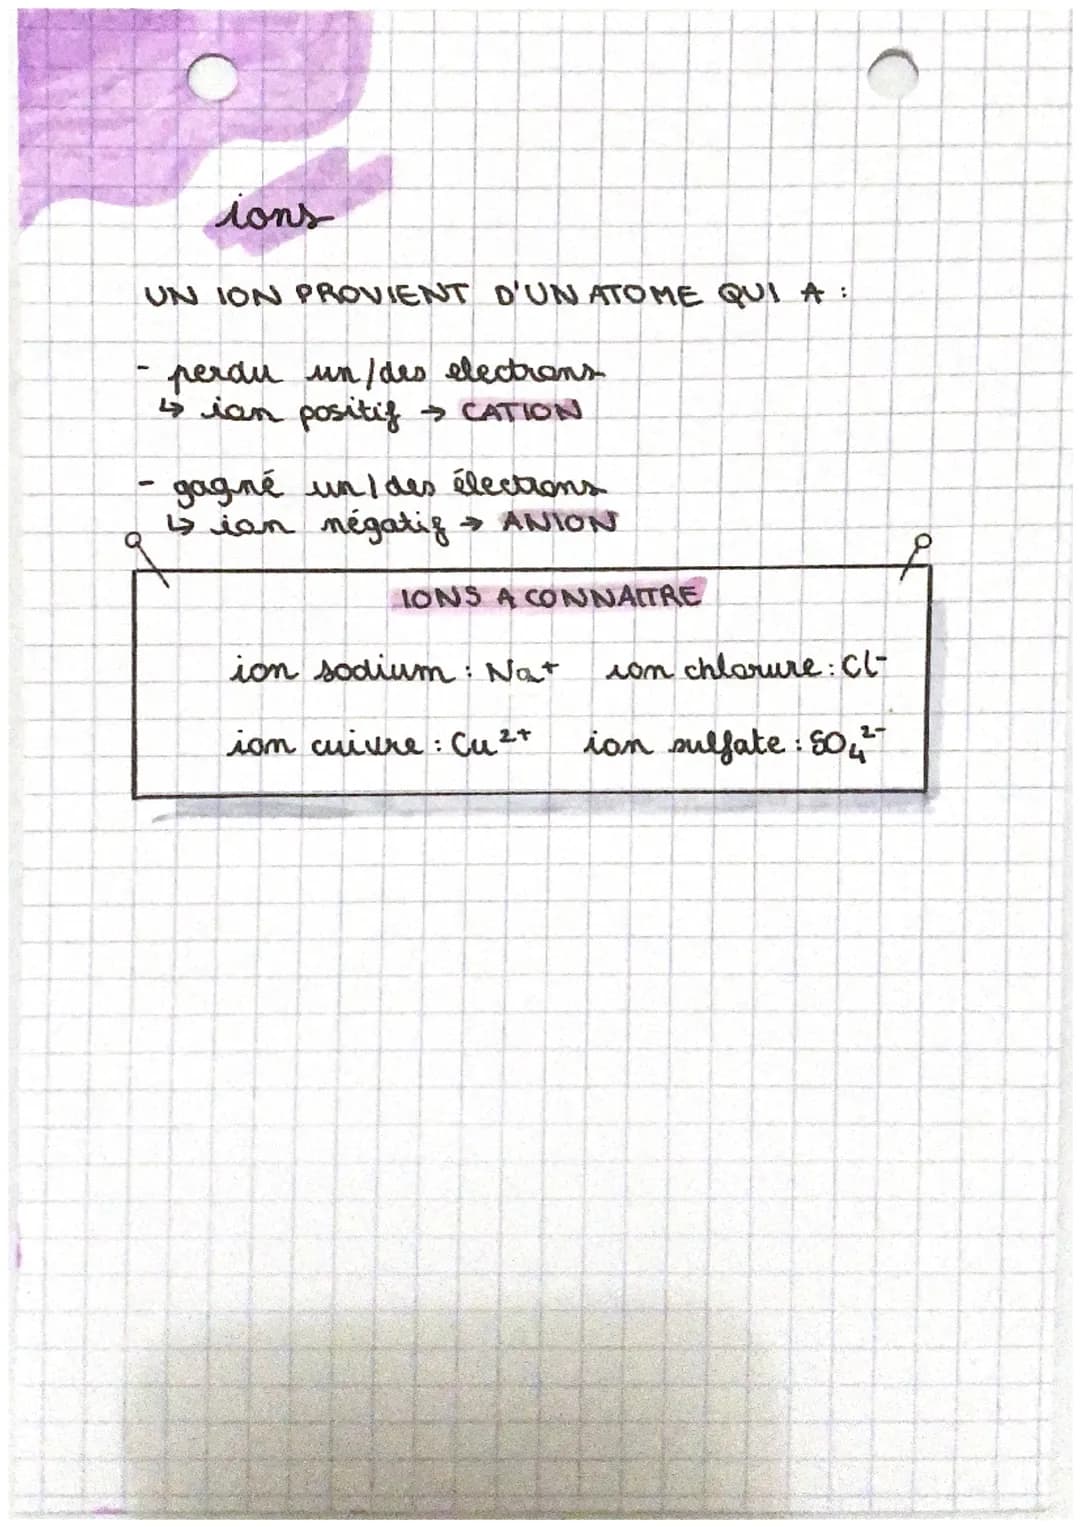 ions
UN ION PROVIENT D'UN ATOME QUI A :
- perdu un/des electrons
↳ ion positif → CATION
- gagné un/des électrons
↳ ion négatif → ANION
IONS A CONNAITRE
ion sodium : Na⁺ ion chlorure : Cl⁻
ion cuivre : Cu²⁺ ion sulfate : SO₄²⁻